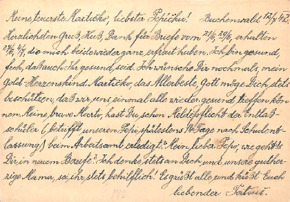 Meine teuerste Mařičko, liebster Pepíčku! Buchenwald 12/7 42.
Herzlichsten Gruß, Kuß, Dank für Briefe vom 21/6, 28/6, erhalten
so mich beide wieder ganz erfreut haben. Ich bin gesund,
froh, daß auch Ihr gesund seid. Ich wünsche Dir nochmals, mein
gold. Herzenskind Mařičko, das Allerbeste, Gott möge Dich stets
beschützen, daß wir uns einmal alle wieder gesund treffen kön-
nen. Meine brave Herta, hast Du schon Meldepflicht der Entlaß-
schüler (betrifft unseren Pepi, spätestens 14 Tage nach Schulent-
lassung) beim Arbeitsamt erledigt? Mein lieber Pepi, wie geht's
Dir in neuem Berufe? Ich denke stets an Dich und unsere guther-
zige Mama, sei ihr stets behilflich! Es grüßt alle und küßt Euch
liebender Tatouš.